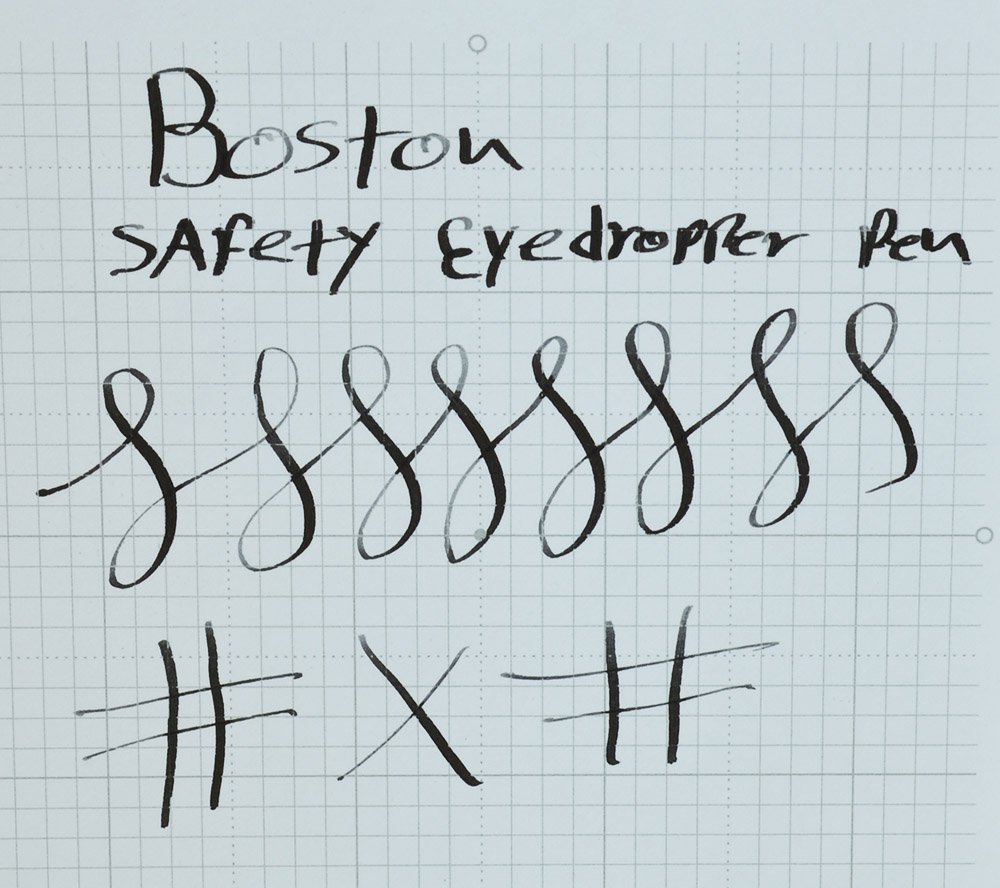 Boston
SAfety Eyedropper Pen
# X #